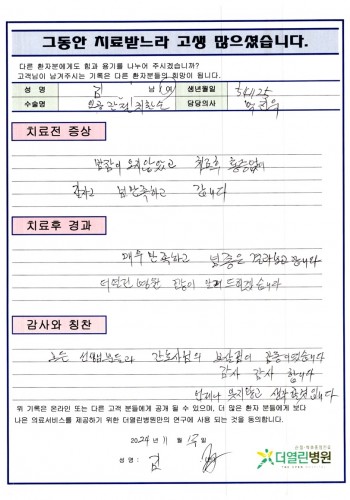 그동안 치료받느라 고생 많으셨습니다.
다른 환자분에게도 힘과 용기를 나누어 주시겠습니까?
고객님이 남겨주시는 기록은 다른 환자분들의 희망이 됩니다.
성 명 김 남 여 생년월일 54.11.25
수술명 인공관절치환술 담당의사
치료전 증상
밤잠이 오지않았고 치료후 통증없이
잠자고 넘 만족하고 갑니다
치료후 경과
매우 만족하고 넘 좋은 결과보고 갑니다
더열린병원 많이 알려드리겠습니다
감사와 칭찬
모든 선생님들과 간호사님의
감사 감사 합니다
언제나 잊지않고
위 기록은 온라인 또는 다른 고객 분들에게 공개 될 수 있으며, 더 많은 환자 분들에게 보다
나은 의료서비스를 제공하기 위한 더열린병원만의 연구에 사용 되는 것을 동의합니다.
2024 년 11 월 일
성 명 : 김
더열린병원